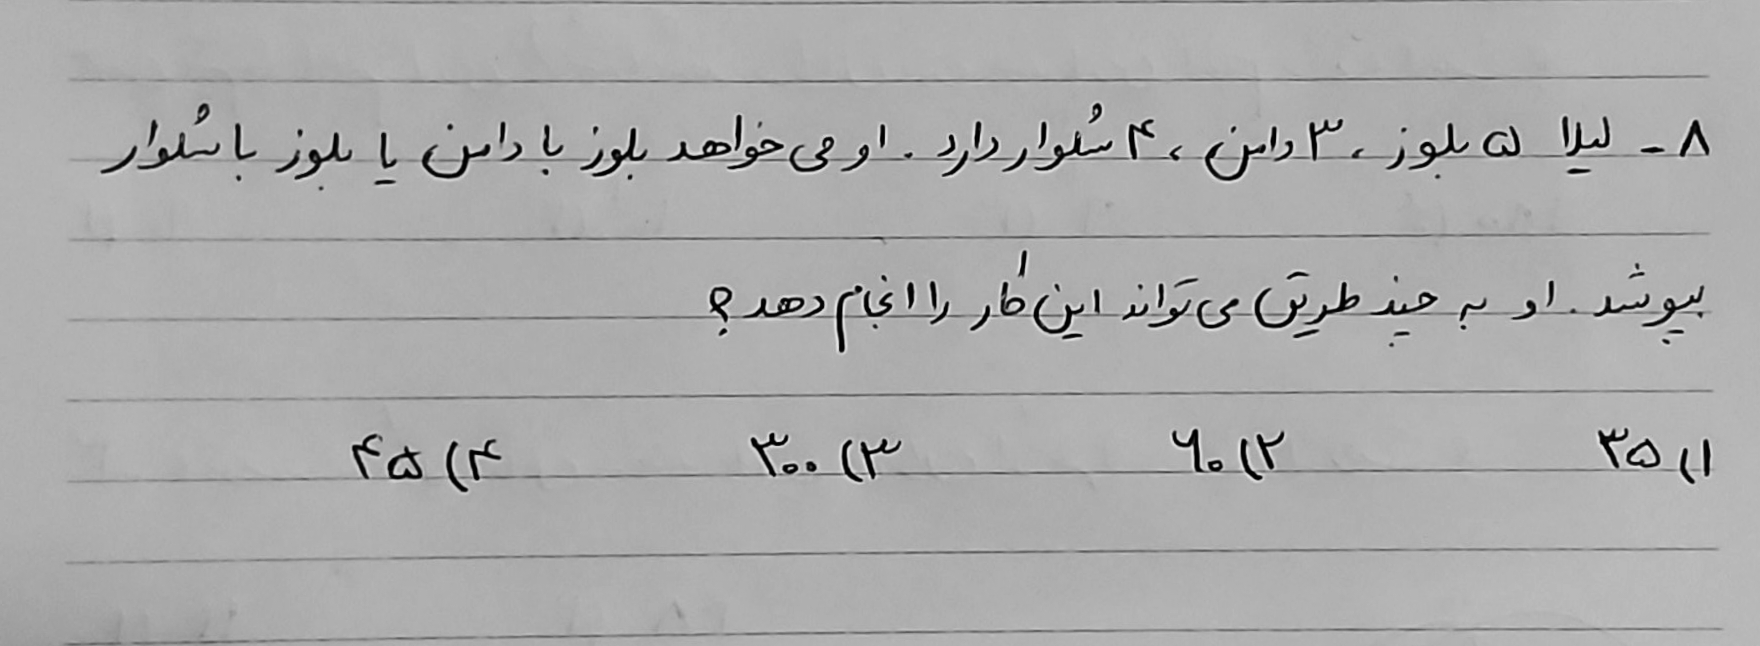 ۸- لیلا ۵ بلوز، ۳ دامن، ۴ شلوار دارد. او می خواهد بلوز با دامن یا بلوز با شلوار
بپوشد. او به چند طریق می تواند این کار را انجام دهد؟
۱) ۳۵ ۲) ۶۰ ۳) ۳۰۰ ۴) ۴۵